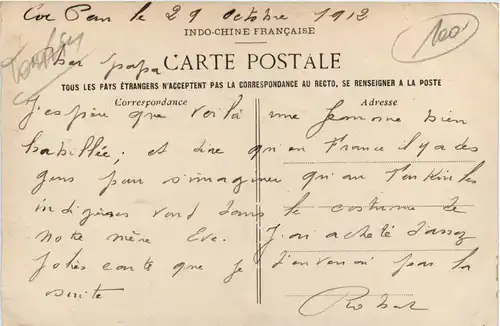 Coc Pan le 29 Octobre 1912
100
INDO-CHINE FRANÇAISE
CARTE POSTALE
Cher papa
TOUS LES PAYS ÉTRANGERS N'ACCEPTENT PAS LA CORRESPONDANCE AU RECTO, SE RENSEIGNER A LA POSTE
Correspondance
Adresse
J'espère que voilà une femme bien
habillée; et dire qu'en France il y a des
gens pour s'imaginer qu'au Tonkin les
indigènes vont dans le costume de
notre mère Eve. J'ai acheté d'assez
jolies carte que je t'enverrai par la
suite
Robert